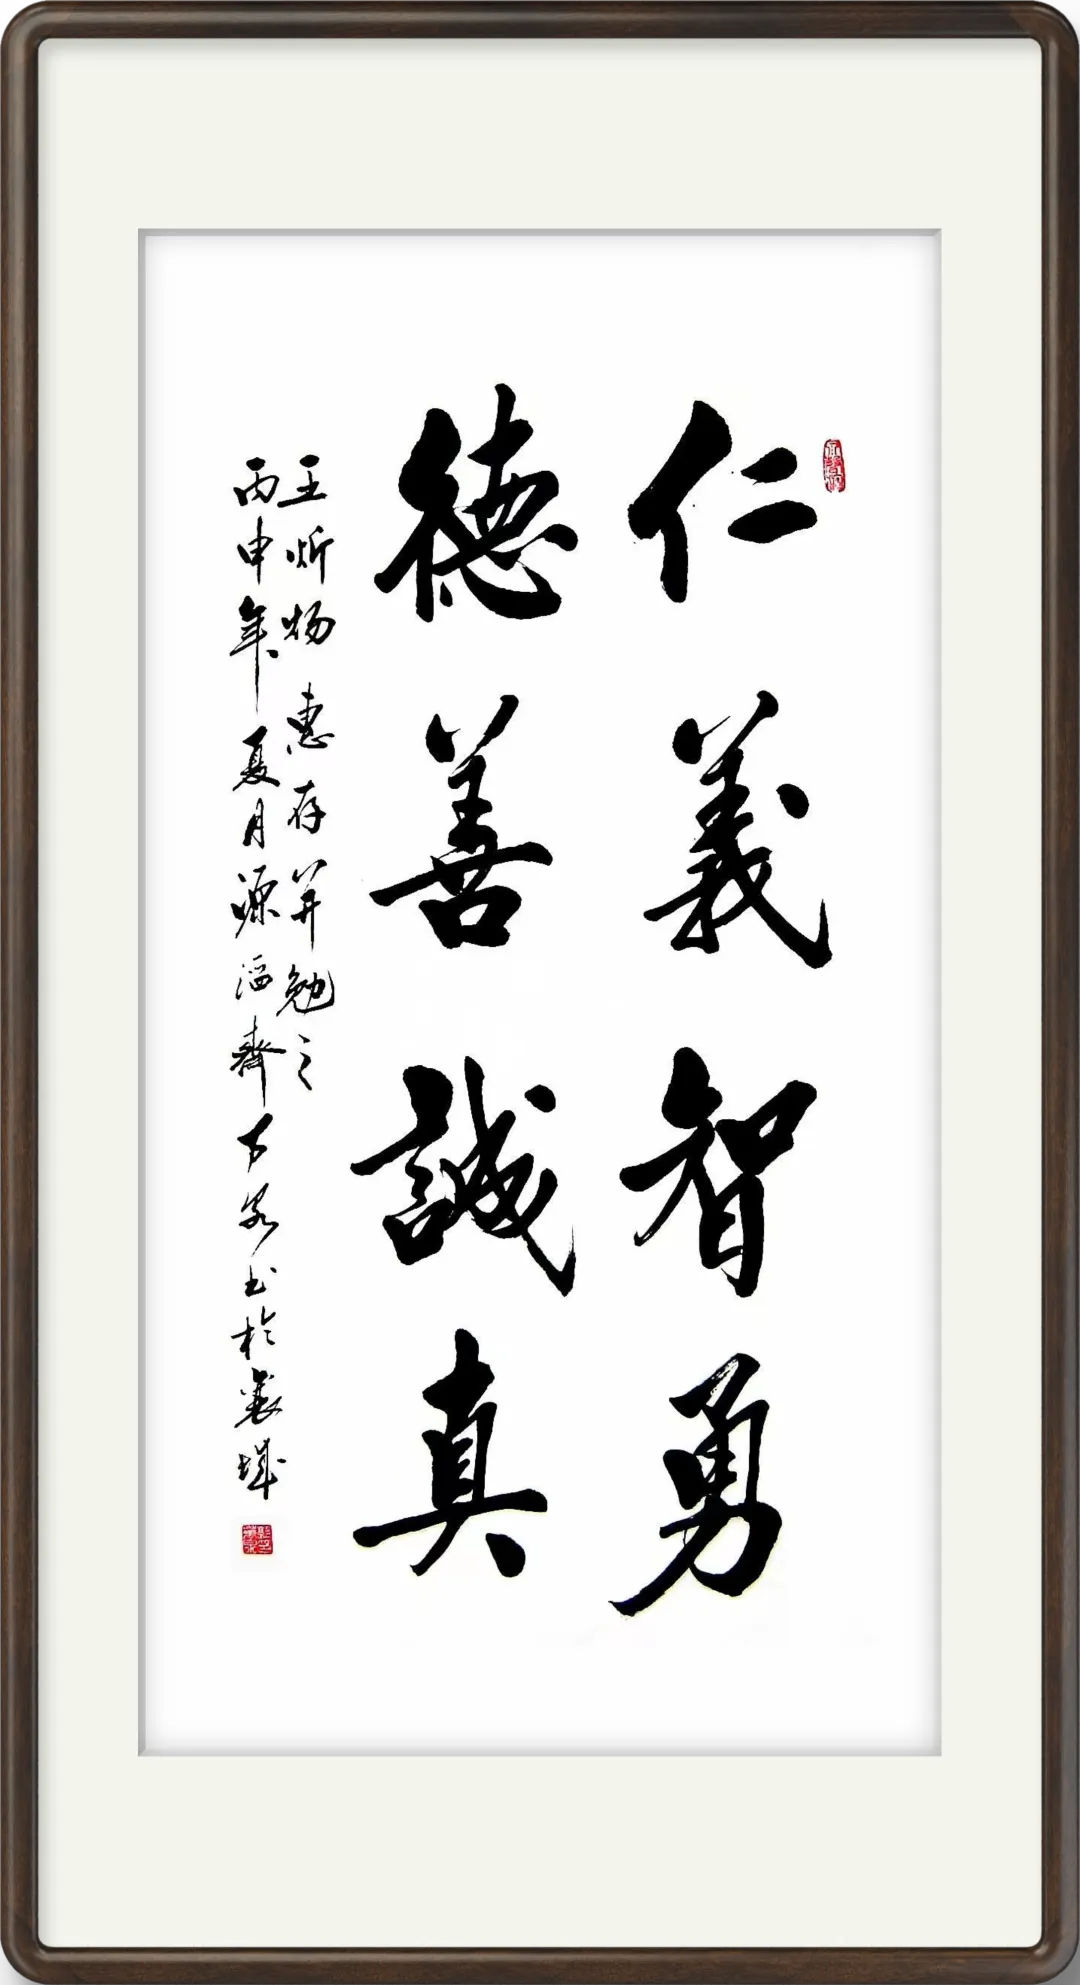 仁義智勇
德善誠真
王炘炀惠存并勉之
丙申年夏月源滔齋书於襄城